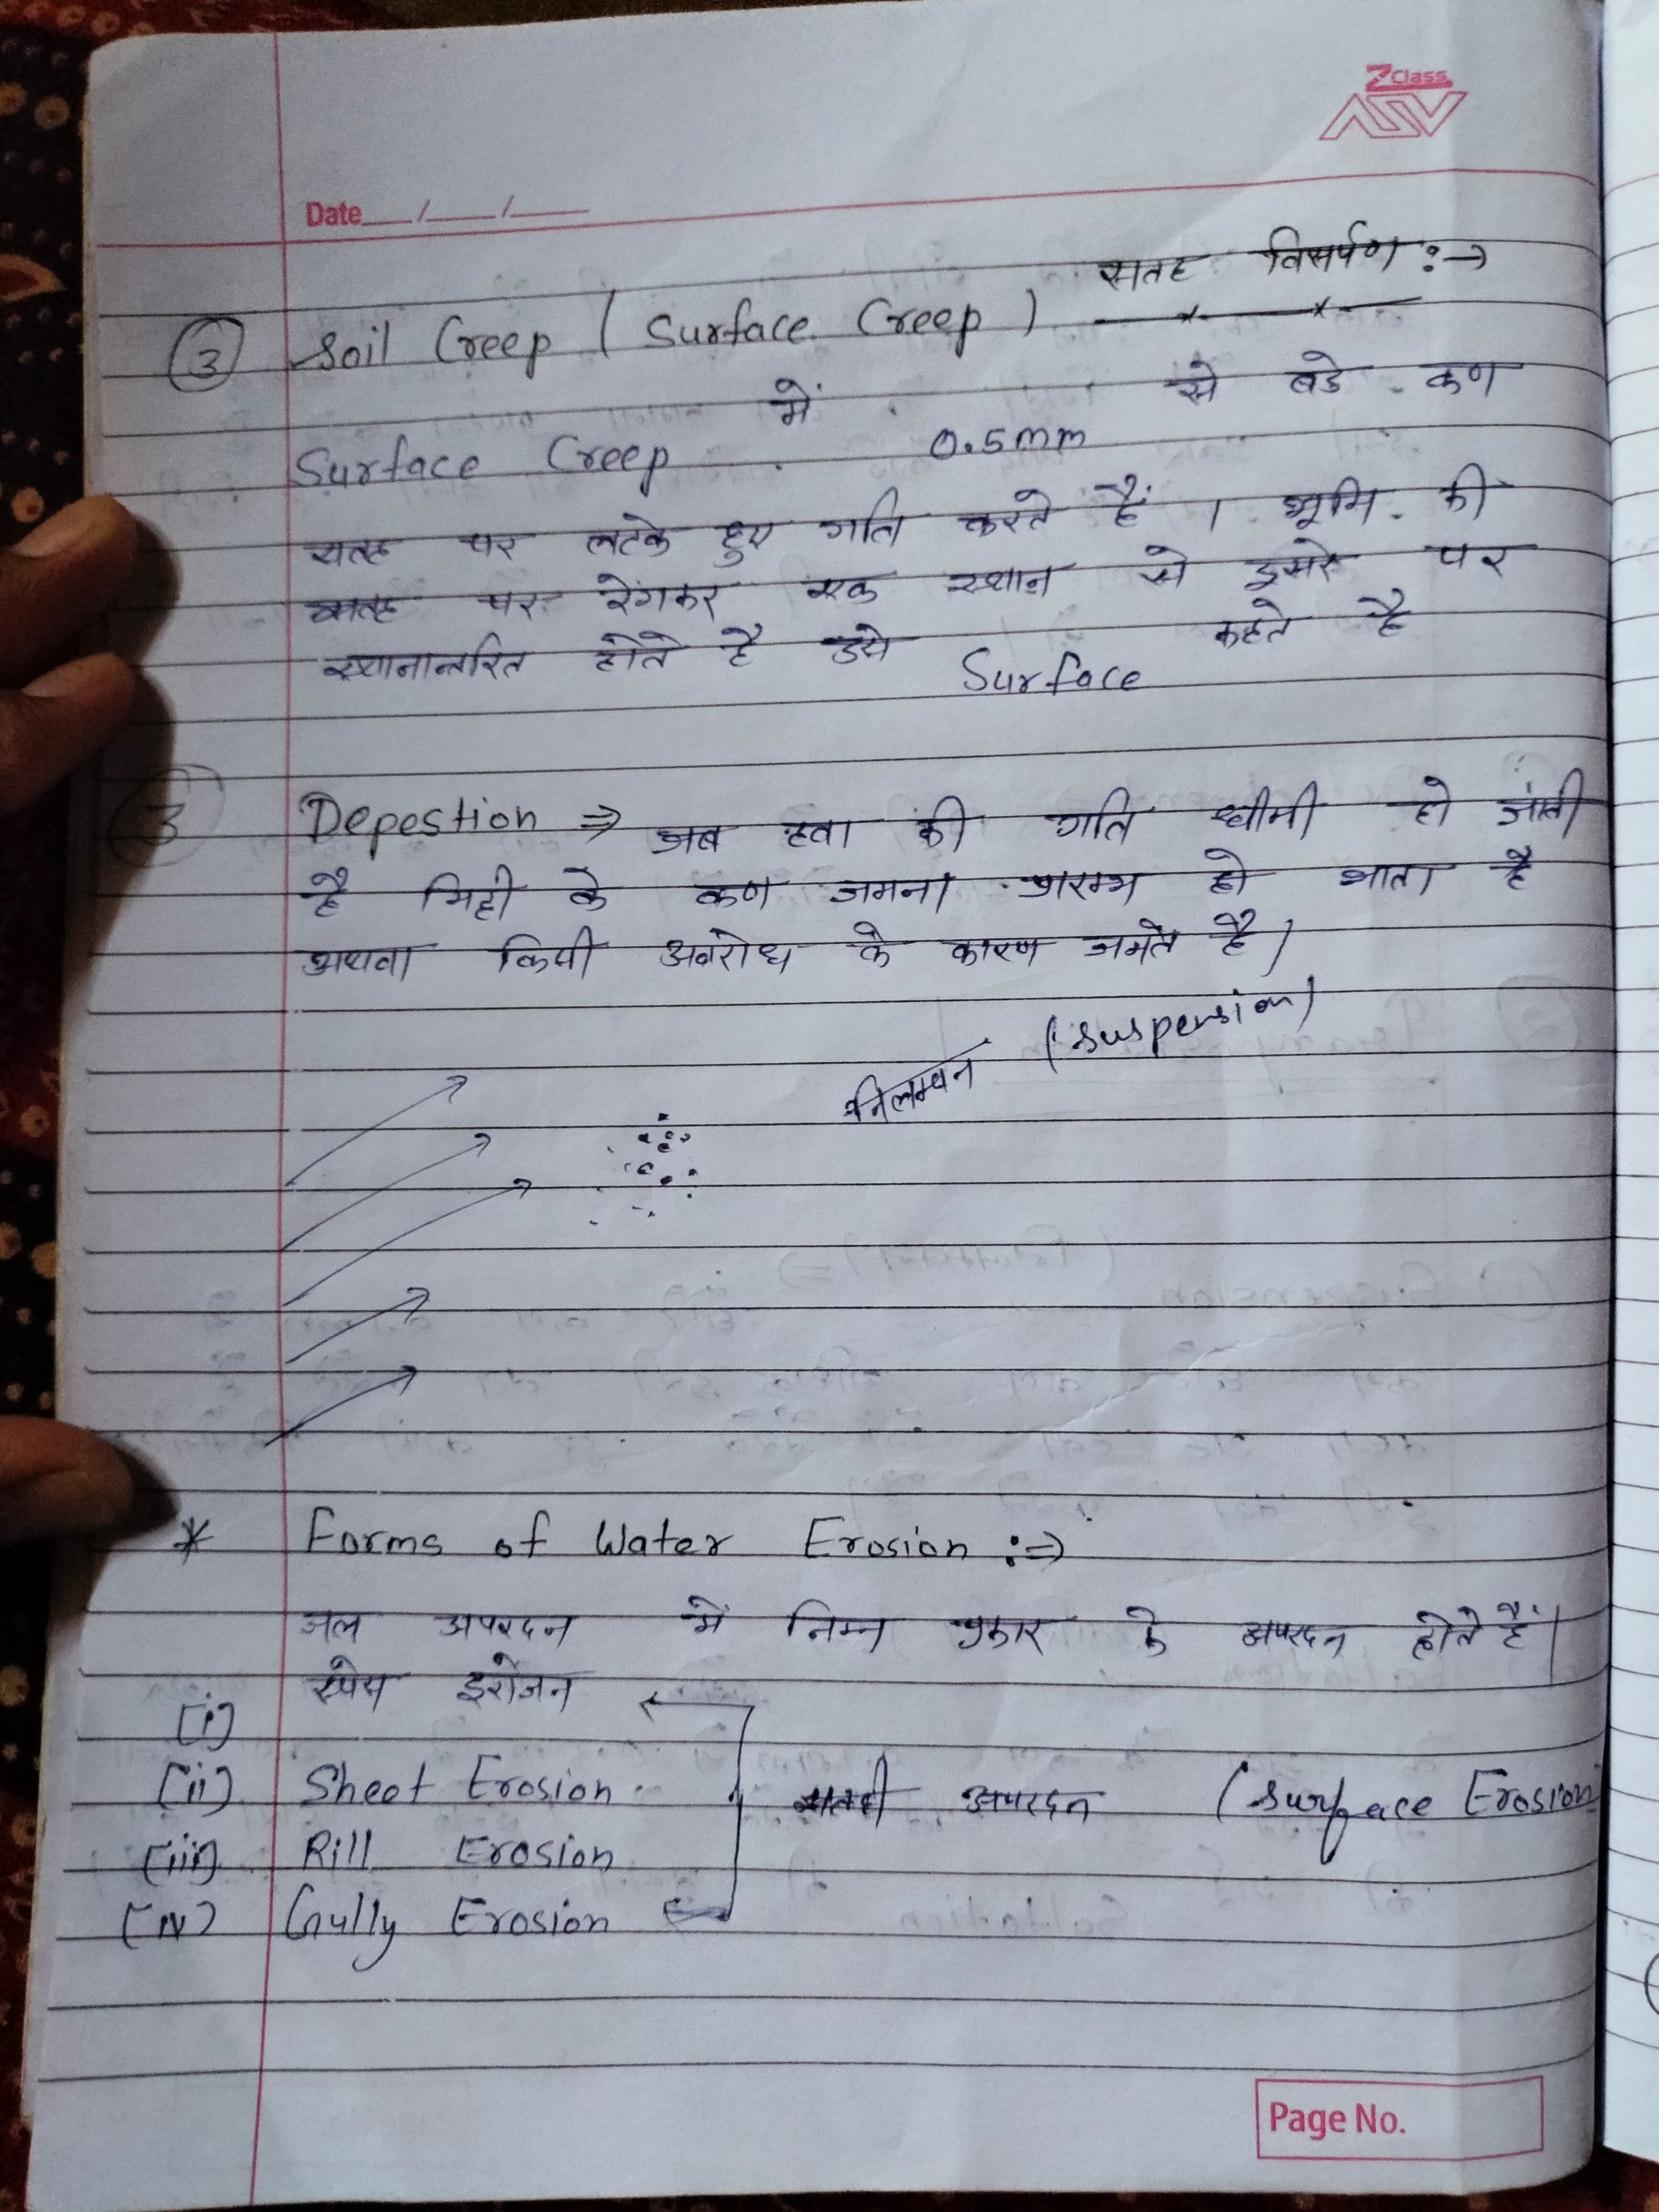 Z Class
ASV
Date __/__/__
③ Soil Creep ( Surface Creep ) सतह विसर्पण :→
Surface Creep में 0.5mm से बडे कण
सतह पर लटके हुए गति करते हैं । भूमि की
सतह पर रेंगकर एक स्थान से दूसरे पर
स्थानान्तरित होते है उसे Surface कहते है
3 Depestion ⇒ जब हवा की गति धीमी हो जाती
है मिट्टी के कण जमना प्रारम्भ हो जाता है
अथवा किसी अवरोध के कारण जमते है।
निलम्बन (suspension)
* Forms of Water Erosion :⇒
जल अपरदन में निम्न प्रकार के अपरदन होते हैं।
(i) स्पेस इरोजन
(ii) Sheet Erosion
सतही अपरदन (surface Erosion
(iii) Rill Erosion
(iv) Gully Erosion
Page No.